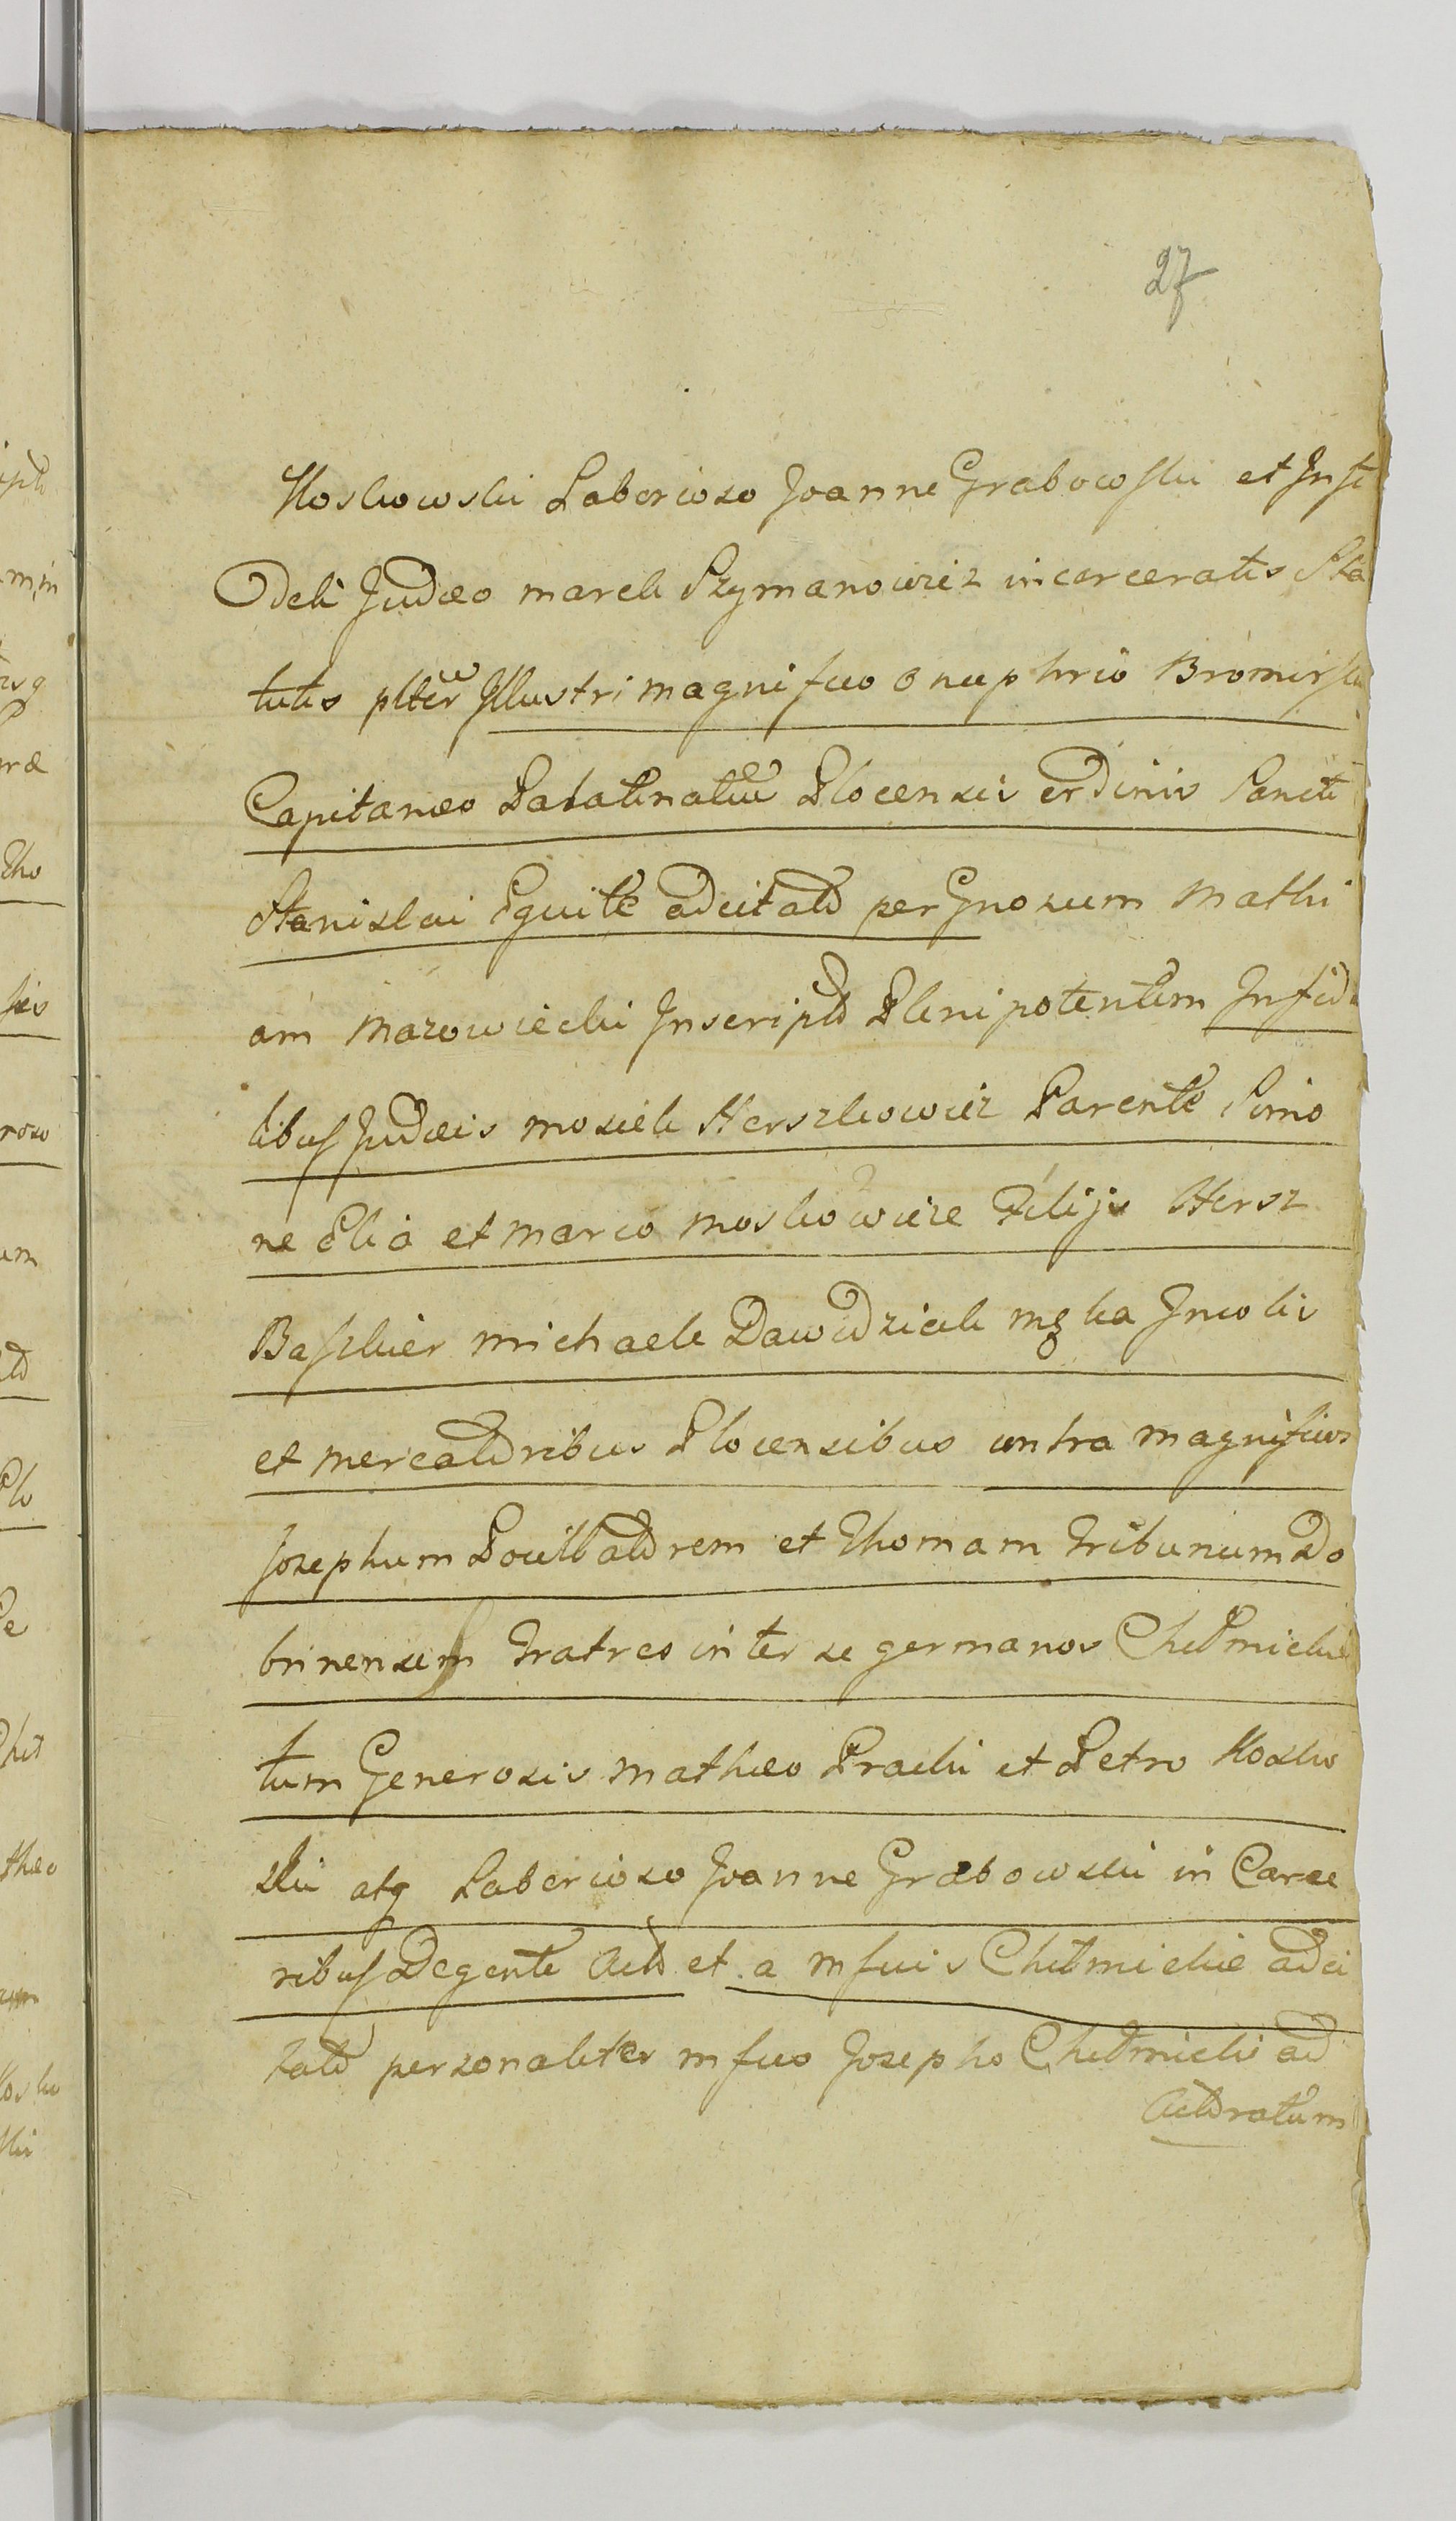 27
Koskowski Laborioso Joanne Grabowski et Infi
deli Judæo marek Szymanowicz incarceratis Sta
tutis plter Illustri magnifico Onuphrio Bromirski
Capitaneo Palatinatus Plocensis ordinis Sancti
Stanislai Equite adcitato per Gnosum Mathi
am Mazowiecki Inscripto Plenipotentem Infide
libus Judæis mosiek Herszkowicz Parente Simo
ne Elia et Marco moskowicze Filijs Hersz
Baszkier michaele Dawidziek mgka Incolis
et mercatoribus Plocensibus contra magnificos
Josephum Pocillatorem et Thomam Tribunum Do
brinensem Fratres inter se germanos Chełmickie
tum Generosis mathæo Pracki et Petro Kosko
ski atq Laborioso Joanne Grabowski in Carce
ribus Degente Acto et a mfcis Chełmickie adci
tato personaliter mfco Josepho Chełmicki ad
Actoratum